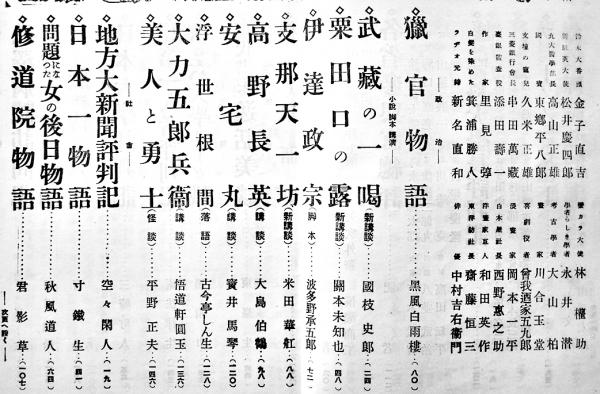 鈴木大番頭 金子直吉
新駐英大使 松井慶四郎
九大醫學部長 高山正雄
國寶 東鄕平八郎
文壇の寵兒 久米正雄
三菱銀行會長 串田萬藏
臺銀監査役 添田壽一
作家 里見弴
白髮を染めた 箕浦勝人
ラヂオ元締 新名直和
蠻カラ大使 林權助
學者らしき學者 永井潜
考古學者 大山柏
畫家 川合玉堂
喜劇役者 曾我廼家五九郎
漫畫家 岡本一平
白木屋社長 西野惠之助
洋畫家亘人 和田英作
東洋紡社長 齋藤恒三
俳優 中村吉右衞門
——政治——
◇獵官物語 黑風白雨樓…(八〇)
——小説 脚本 講演——
◇武藏の一喝 (新講談) 國枝史郎…(二四)
◇粟田口の露 (新講談) 關本未知也…(四八)
◇伊達政宗 (脚本) 波多野承五郎…(七二)
◇支那天一坊 (新講談) 米田華舡…(八八)
◇高野長英 (講談) 大島伯鶴…(九八)
◇安宅丸 (講談) 寶井馬琴…(一二〇)
◇浮世根問 (落語) 古今亭しん生…(一二八)
◇大力五郎兵衞 (講談) 悟道軒圓玉…(一三六)
◇美人と勇士 (怪談) 平野正夫…(一四六)
——社會——
◇地方大新聞評判記 空々閑人…(一九)
◇日本一物語 寸鐵生…(四一)
◇問題になつた女の後日物語 秋風道人…(六四)
◇修道院物語 君影草…(一〇七)
——次頁へ續く——